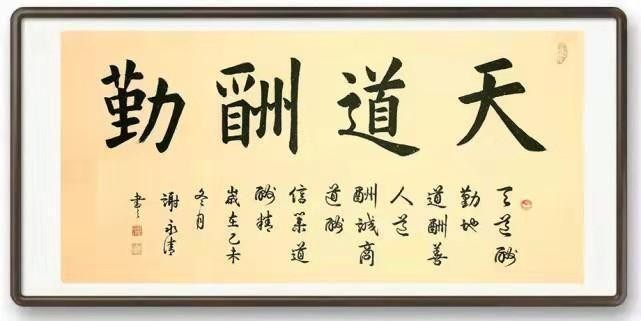 天道酬勤
天道酬
勤地
道酬善
人道
酬诚商
道酬
信業道
酬精
歲在乙未
冬月
谢永清
書